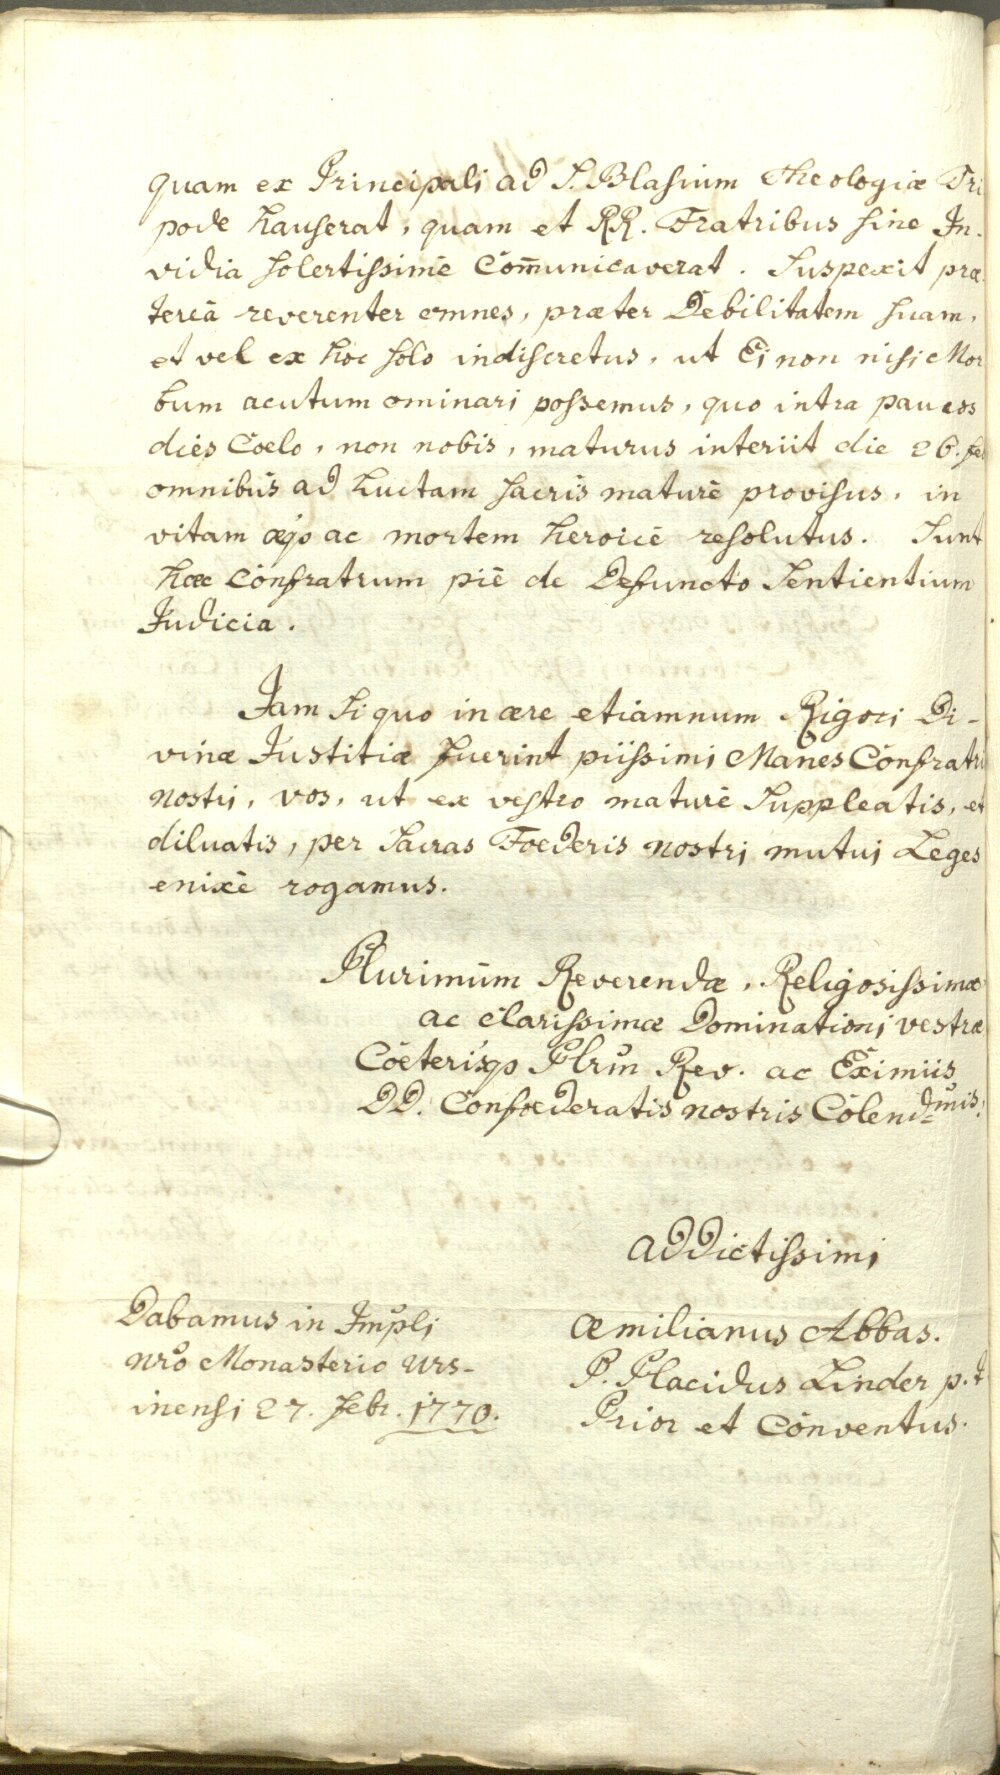 quam ex Principali ad S. Blasium Theologiæ Tri
pode hauserat, quam et RR. Fratribus sine In-
vidia solertissimè Com̄unicaverat. Suspexit præ
tereà reverenter omnes, præter Debilitatem suam,
et vel ex hoc solo indiscretus, ut Ei non nisi Mor
bum acutum ominari possemus, quo intra paucos
dies Coelo, non nobis, maturus interiit die 26. feb
omnibus ad Luctam sacris maturè provisus, in
vitam æq̃ ac mortem heroicè resolutus. Sunt
hæc Confratrum piè de Defuncto Sentientium
Judicia.
Jam si quo in ære etiamnum Rigori Di-
vinæ Justitiæ fuerint piissimi Manes Confratri
nostri, vos, ut ex vestro maturè Suppleatis, et
diluatis, per Sacras Foederis nostri mutui Leges
enixè rogamus.
Plurimùm Reverendæ, Religosissimæ
ac Clarissimæ Dominationi vestræ
Coeterisq̃ Plrm̃ Rev. ac Eximiis
DD. Confœderatis nostris Colendmis.
addictissimi
Dabamus in Imp̃li
nr̃o Monasterio Urs-
inensi 27. Febr. 1770.
Æmilianus Abbas.
P. Placidus Linder p.t
Prior et Conventus.